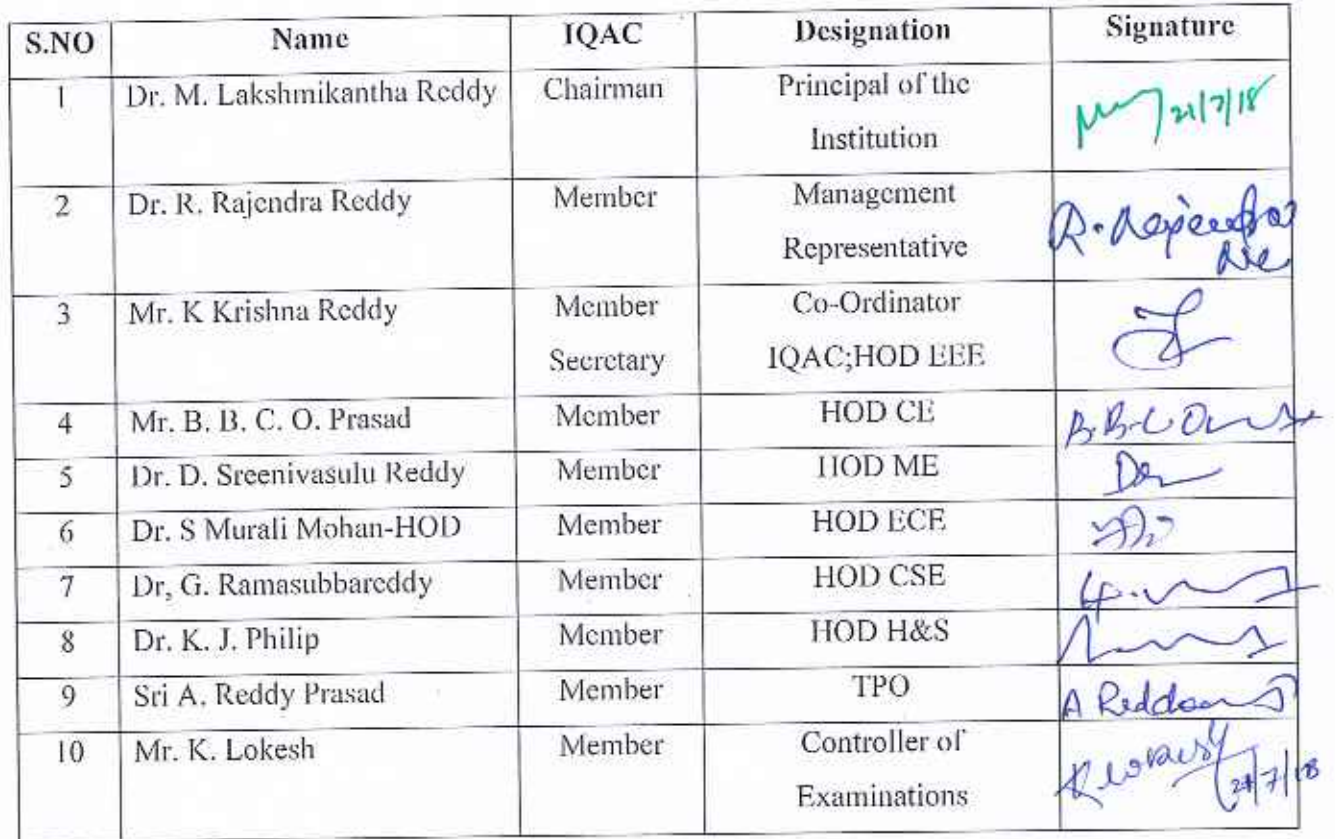 S.NO Name IQAC Designation Signature
1 Dr. M. Lakshmikantha Reddy Chairman Principal of the
Institution
21/7/18
2 Dr. R. Rajendra Reddy Member Management
Representative
R. Rajendra
3 Mr. K Krishna Reddy Member Co-Ordinator
Secretary IQAC;HOD EEE
4 Mr. B. B. C. O. Prasad Member HOD CE
5 Dr. D. Sreenivasulu Reddy Member HOD ME
6 Dr. S Murali Mohan-HOD Member HOD ECE
7 Dr, G. Ramasubbareddy Member HOD CSE
8 Dr. K. J. Philip Member HOD H&S
9 Sri A. Reddy Prasad Member TPO
10 Mr. K. Lokesh Member Controller of
Examinations
K Lokesh
21/7/18